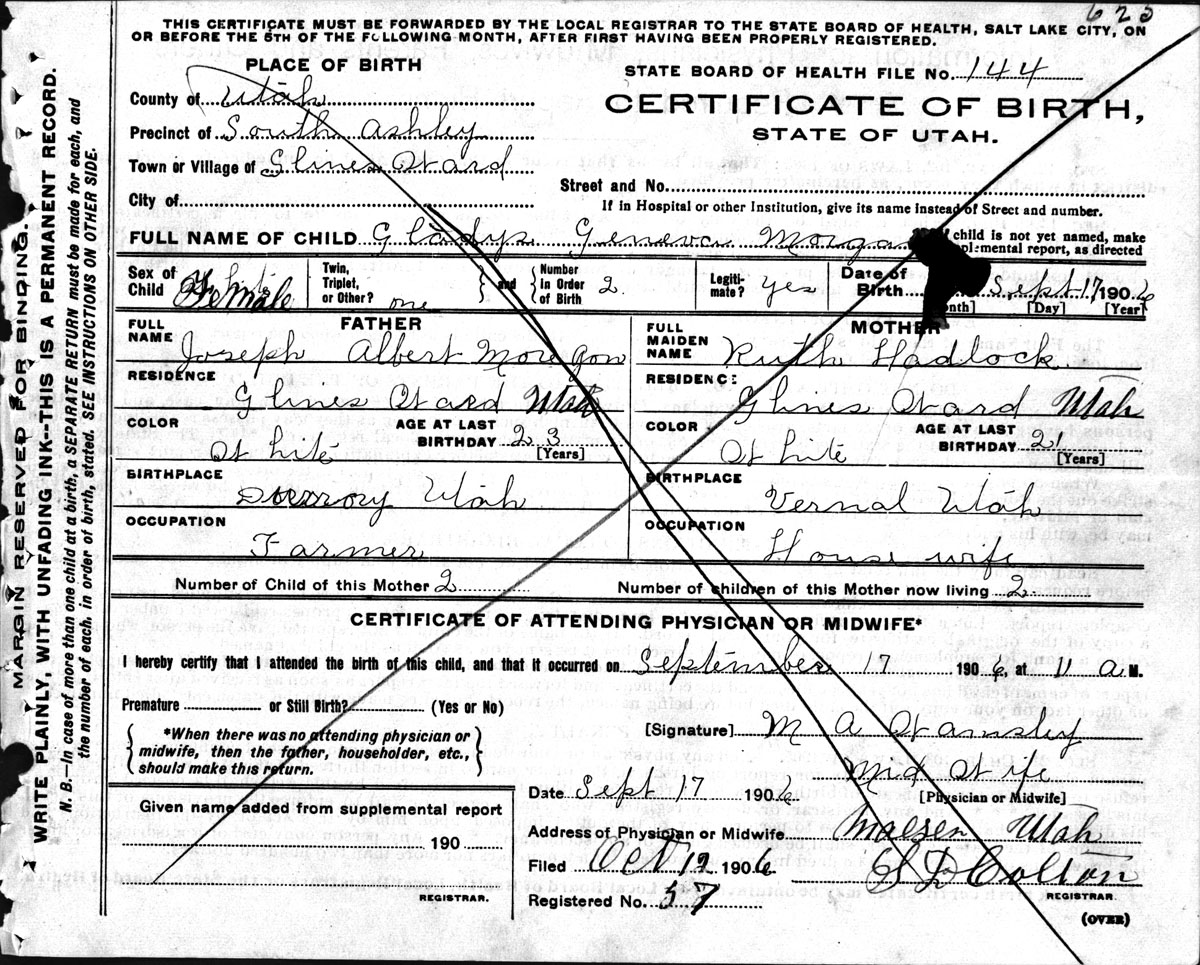 623
THIS CERTIFICATE MUST BE FORWARDED BY THE LOCAL REGISTRAR TO THE STATE BOARD OF HEALTH, SALT LAKE CITY, ON
OR BEFORE THE 5TH OF THE FOLLOWING MONTH, AFTER FIRST HAVING BEEN PROPERLY REGISTERED.
MARGIN RESERVED FOR BINDING.
WRITE PLAINLY, WITH UNFADING INK--THIS IS A PERMANENT RECORD.
N. B.—In case of more than one child at a birth, a SEPARATE RETURN must be made for each, and
the number of each, in order of birth, stated. SEE INSTRUCTIONS ON OTHER SIDE.
PLACE OF BIRTH
County of Utah
Precinct of South Ashley
Town or Village of Glines Ward
City of
STATE BOARD OF HEALTH FILE No. 144
CERTIFICATE OF BIRTH,
STATE OF UTAH.
Street and No.
If in Hospital or other Institution, give its name instead of Street and number.
FULL NAME OF CHILD Gladys Geneva Morgan
child is not yet named, make
plemental report, as directed
Sex of Child Female
Twin, Triplet, or Other? one
and
Number in Order of Birth 2
Legiti-mate? yes
Date of Birth Sept 17 1906
[Day] [Year]
FATHER
FULL NAME Joseph Albert Moregon
RESIDENCE Glines Ward Utah
COLOR White
AGE AT LAST BIRTHDAY 23
[Years]
BIRTHPLACE Utah
OCCUPATION Farmer
MOTHER
FULL MAIDEN NAME Ruth Hadlock
RESIDENCE Glines Ward Utah
COLOR White
AGE AT LAST BIRTHDAY 21
[Years]
BIRTHPLACE Vernal Utah
OCCUPATION House wife
Number of Child of this Mother 2
Number of children of this Mother now living 2
CERTIFICATE OF ATTENDING PHYSICIAN OR MIDWIFE*
I hereby certify that I attended the birth of this child, and that it occurred on September 17 1906, at 11 a M.
Premature or Still Birth? (Yes or No)
*When there was no attending physician or
midwife, then the father, householder, etc.,
should make this return.
[Signature] M A Wamsley
Mid Wife
[Physician or Midwife]
Date Sept 17 1906
Given name added from supplemental report
190
REGISTRAR.
Address of Physician or Midwife Maeser Utah
Filed Oct 12 1906
S D Colton
REGISTRAR.
Registered No. 57
(OVER)